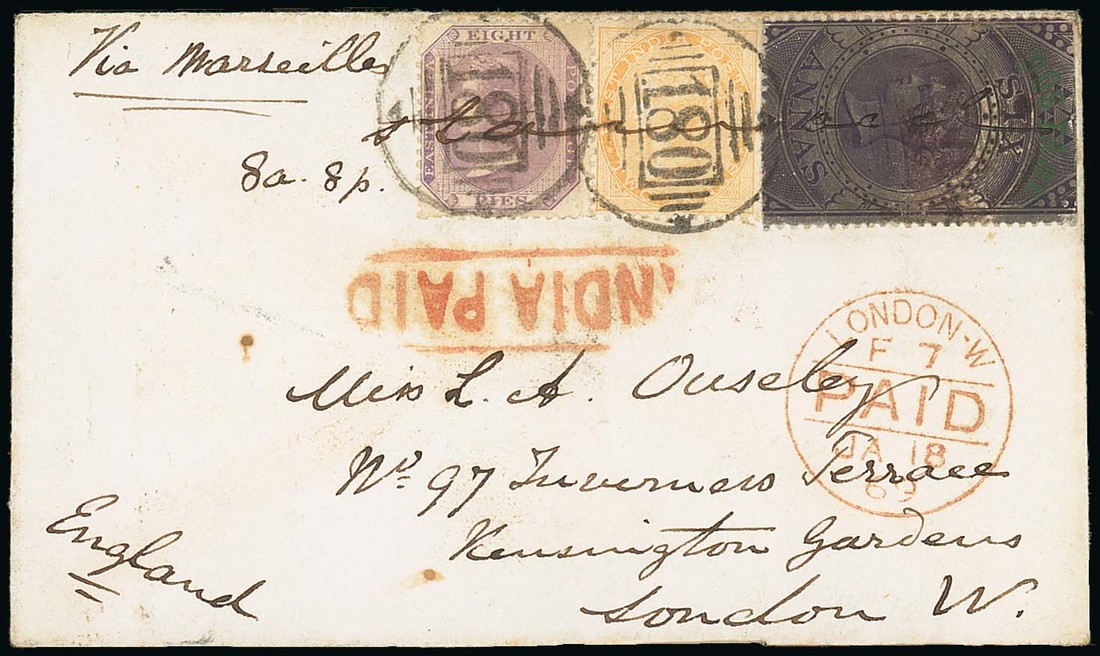 Via Marseilles
8a. 8p.
EIGHT
EAST INDIA
PIES
180
180
SIX
ANNAS
INDIA PAID
LONDON·W
F 7
PAID
JA 18
69
Miss L. A. Ouseley
No. 97 Inverness Terrace
Kensington Gardens
London W.
England